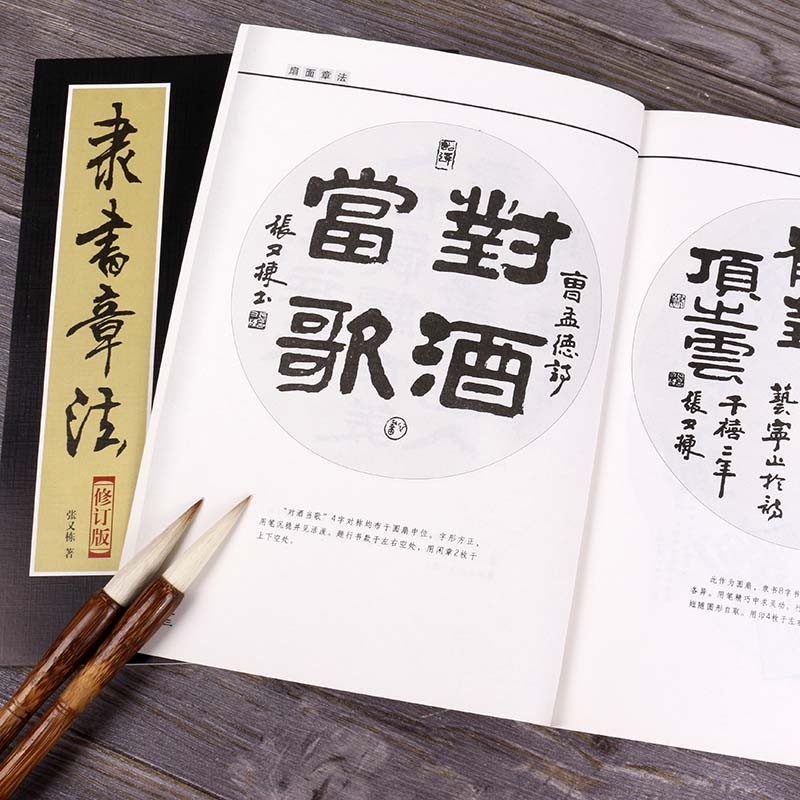 隶书章法
(修订版)
张又栋 著
扇面章法
對酒
當歌
曹孟德詩
張又棟书
“对酒当歌”4字对称均布于圆扇中位。字形方正、
用笔沉稳并见活泼。题行书款于左右空处，用闲章2枚于
上下空处。
頂之雲
藝寧山於詩
千禧二年
張又棟
此作为圆扇，隶书8字书
各异。用笔精巧中求灵动。行
短随圆形自取。用印4枚于左右